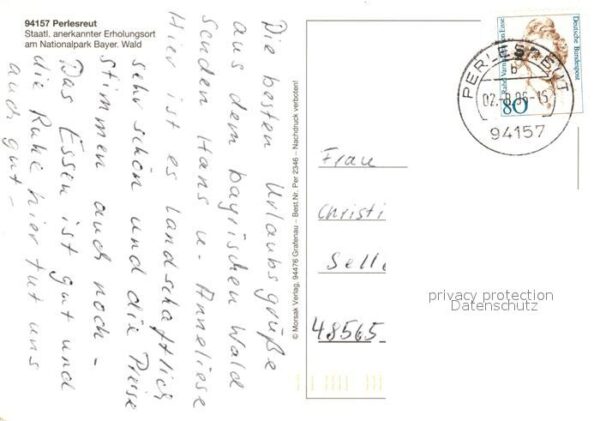 94157 Perlesreut
Staatl. anerkannter Erholungsort
am Nationalpark Bayer. Wald
Die besten Urlaubsgrüße
aus dem bayrischen Wald
senden Hans u. Anneliese
Hier ist es landschaftlich
sehr schön und die Preise
stimmen auch noch -
Das Essen ist gut und
die Ruhe hier tut uns
auch gut -
© Morsak Verlag, 94476 Grafenau - Best.Nr. Per 2346 - Nachdruck verboten!
Deutsche Bundespost
80
PERLESREUT
b
02.-8.96-15
94157
Frau
Christi
Selle
48565
privacy protection
Datenschutz